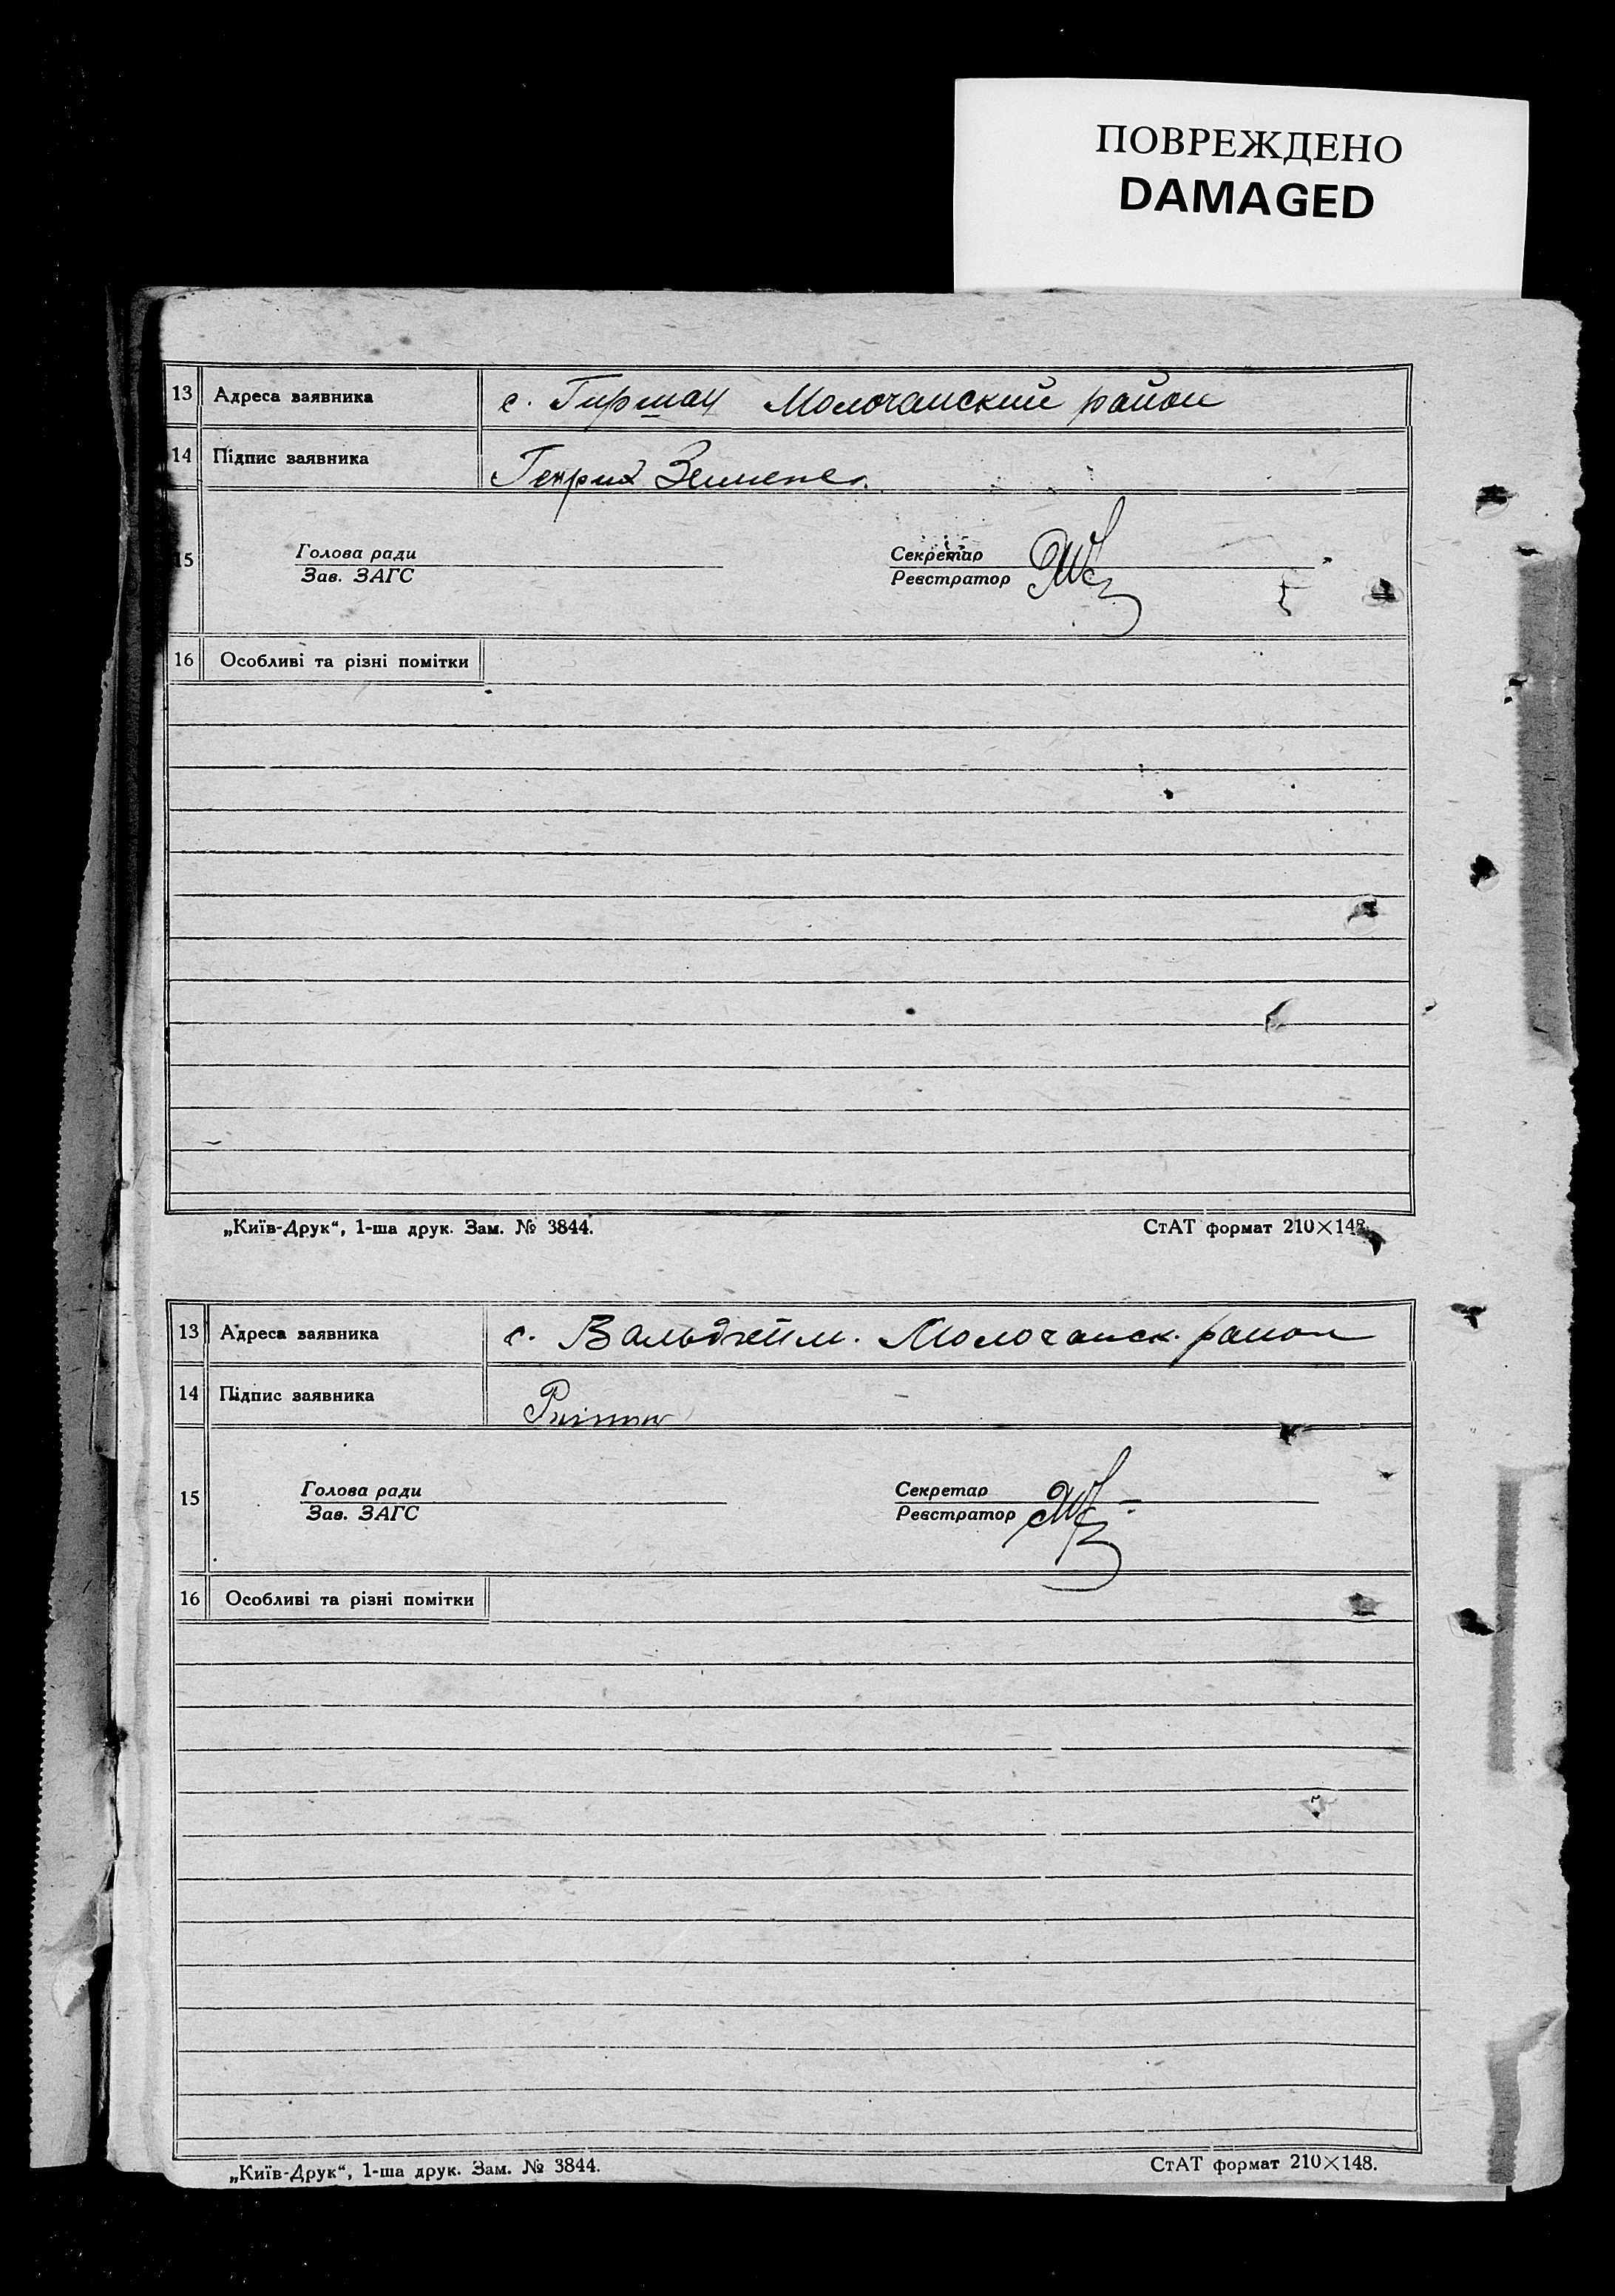 ПОВРЕЖДЕНО
DAMAGED
13 Адреса заявника с. Гиршау Молочанский район
14 Підпис заявника Генрих
15 Голова ради Секретар
Зав. ЗАГС Реєстратор
16 Особливі та різні помітки
„Київ-Друк“, 1-ша друк. Зам. № 3844. СтАТ формат 210×148.
13 Адреса заявника с. Вальдгейм. Молочанск. район
14 Підпис заявника
15 Голова ради Секретар
Зав. ЗАГС Реєстратор
16 Особливі та різні помітки
„Київ-Друк“, 1-ша друк. Зам. № 3844. СтАТ формат 210×148.